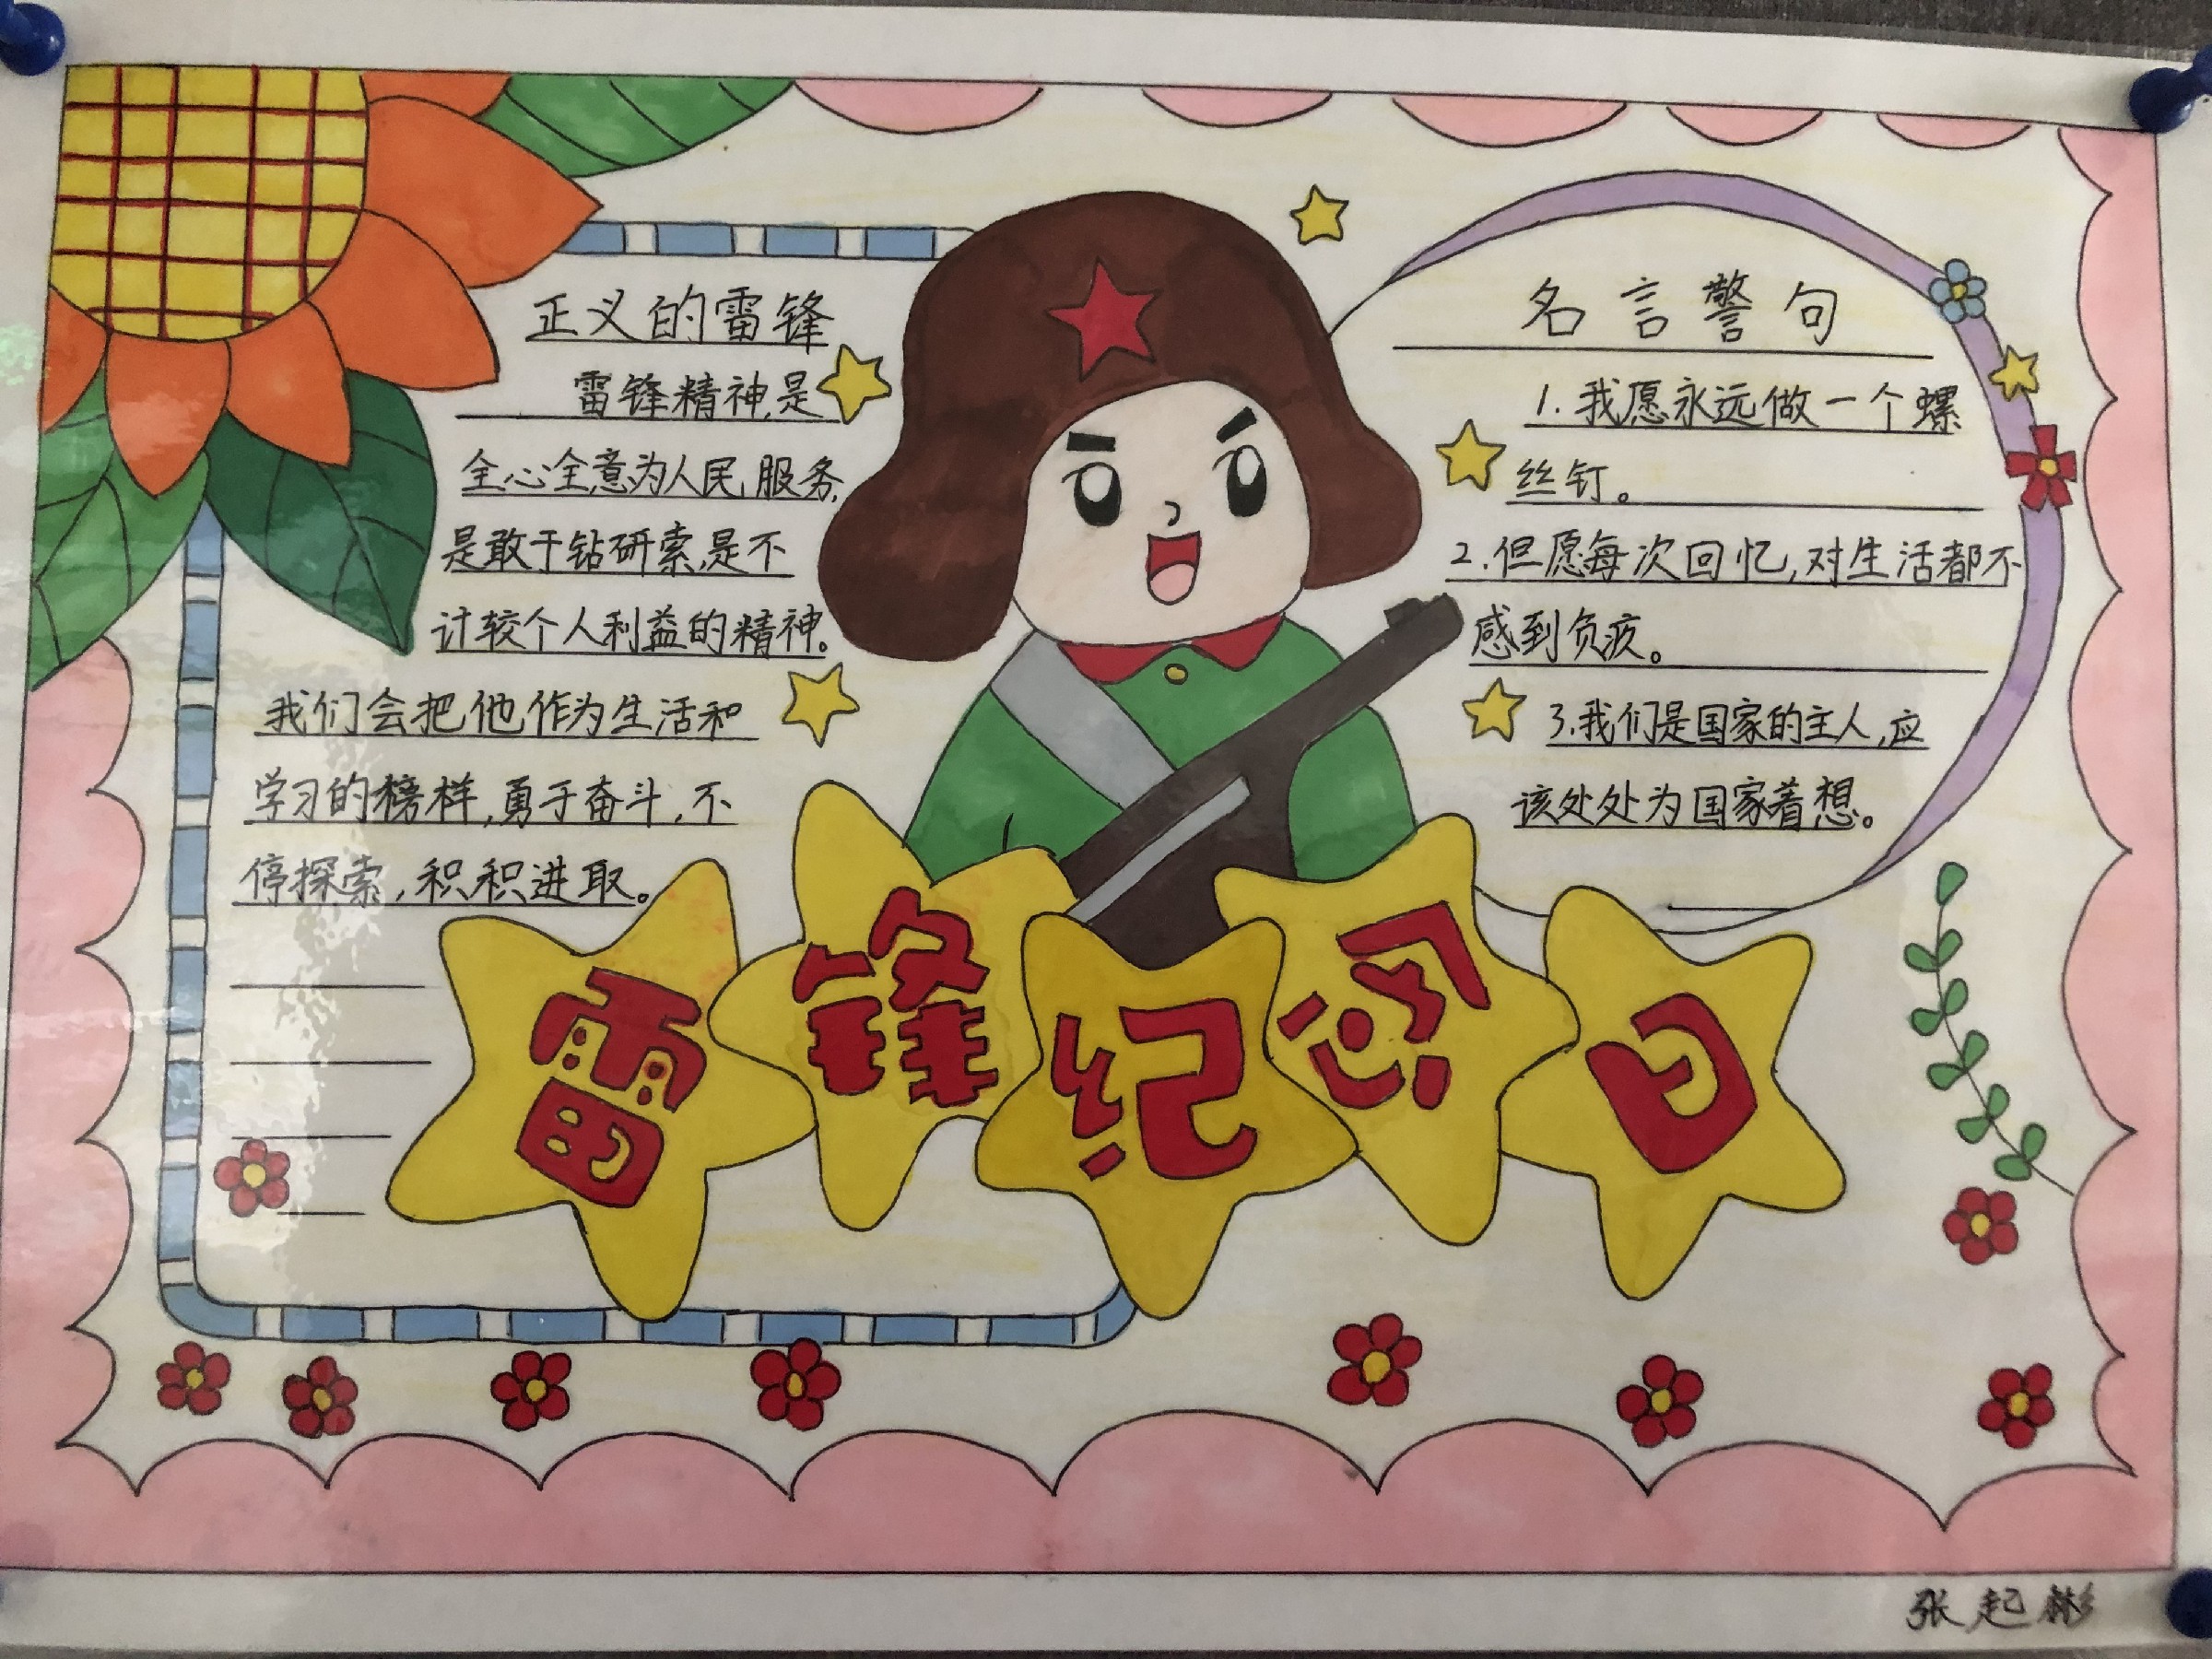 正义的雷锋
雷锋精神,是
全心全意为人民服务,
是敢于钻研索,是不
计较个人利益的精神。
我们会把他作为生活和
学习的榜样,勇于奋斗,不
停探索,积积进取。
名言警句
1.我愿永远做一个螺
丝钉。
2.但愿每次回忆,对生活都不
感到负疚。
3.我们是国家的主人,应
该处处为国家着想。
雷锋纪念日
张起彬